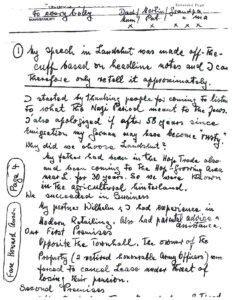 to every baby David / Martin / Grandpa
Ann / Pat / Ma
x x x x x x
① My Speech in Landshut was made off-the-
cuff based on headline notes and I can
therefore only retell it approximately.
I started by thanking people for coming to listen
to what the Nazi Period meant to the Jews.
I also apologized if after 58 years since
Emigration my German may have become "rusty"
Why did we choose Landshut?
My father had been in the Hop Trade also
and been coming to the Hop-Growing Area
near L. for 30 years. So we were known
in the agricultural hinterland.
We succeeded in Business
My partner Wilhelm S had experience in
Modern Retailing. Also had parental advice &
assistance.
Our First Premises
Opposite the Townhall. The owners of the
Property (2 retired honorable Army Officers) were
forced to cancel Lease under threat of
losing their pension.
Second Premises
Page 4